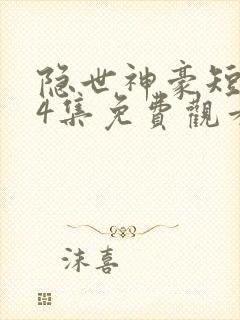 隐世神豪短
4集免費觀看
沫喜